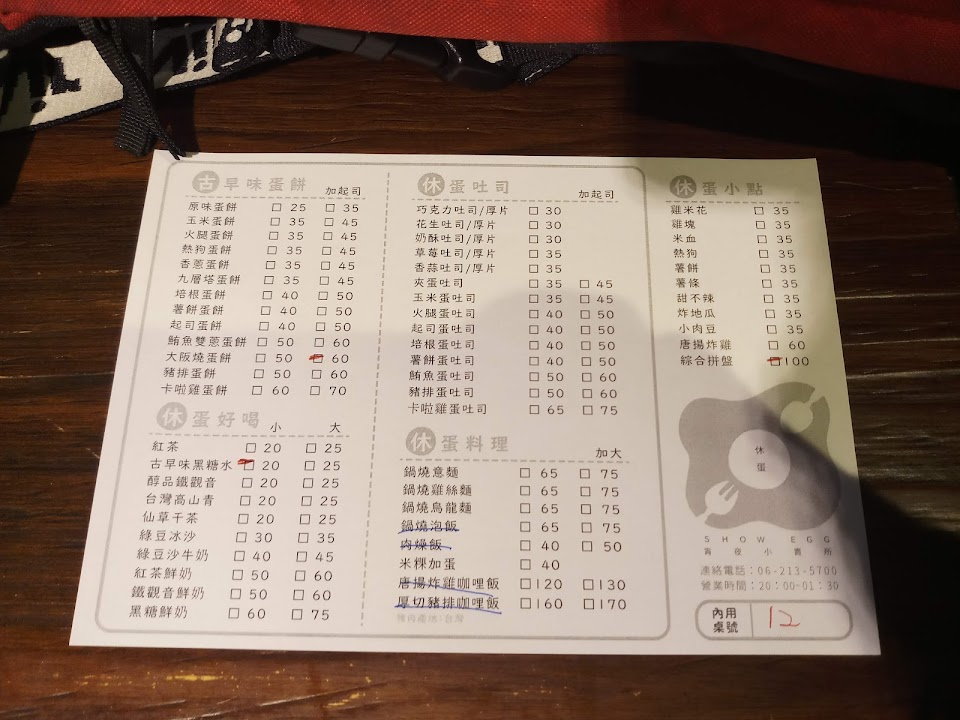 古早味蛋餅 加起司
原味蛋餅 □ 25 □ 35
玉米蛋餅 □ 35 □ 45
火腿蛋餅 □ 35 □ 45
熱狗蛋餅 □ 35 □ 45
香蔥蛋餅 □ 35 □ 45
九層塔蛋餅 □ 35 □ 45
培根蛋餅 □ 40 □ 50
薯餅蛋餅 □ 40 □ 50
起司蛋餅 □ 40 □ 50
鮪魚雙蔥蛋餅 □ 50 □ 60
大阪燒蛋餅 □ 50 □ 60
豬排蛋餅 □ 50 □ 60
卡啦雞蛋餅 □ 60 □ 70
休蛋好喝 小 大
紅茶 □ 20 □ 25
古早味黑糖水 □ 20 □ 25
醇品鐵觀音 □ 20 □ 25
台灣高山青 □ 20 □ 25
仙草干茶 □ 20 □ 25
綠豆冰沙 □ 30 □ 35
綠豆沙牛奶 □ 40 □ 45
紅茶鮮奶 □ 50 □ 60
鐵觀音鮮奶 □ 50 □ 60
黑糖鮮奶 □ 60 □ 75
休蛋吐司 加起司
巧克力吐司/厚片 □ 30
花生吐司/厚片 □ 30
奶酥吐司/厚片 □ 30
草莓吐司/厚片 □ 35
香蒜吐司/厚片 □ 35
夾蛋吐司 □ 35 □ 45
玉米蛋吐司 □ 35 □ 45
火腿蛋吐司 □ 40 □ 50
起司蛋吐司 □ 40 □ 50
培根蛋吐司 □ 40 □ 50
薯餅蛋吐司 □ 40 □ 50
鮪魚蛋吐司 □ 50 □ 60
豬排蛋吐司 □ 50 □ 60
卡啦雞蛋吐司 □ 65 □ 75
休蛋料理 加大
鍋燒意麵 □ 65 □ 75
鍋燒雞絲麵 □ 65 □ 75
鍋燒烏龍麵 □ 65 □ 75
鍋燒泡飯 □ 65 □ 75
肉燥飯 □ 40 □ 50
米粿加蛋 □ 40
唐揚炸雞咖哩飯 □120 □130
厚切豬排咖哩飯 □160 □170
豬肉產地：台灣
休蛋小點
雞米花 □ 35
雞塊 □ 35
米血 □ 35
熱狗 □ 35
薯餅 □ 35
薯條 □ 35
甜不辣 □ 35
炸地瓜 □ 35
小肉豆 □ 35
唐揚炸雞 □ 60
綜合拼盤 □100
休
蛋
SHOW EGG
宵夜小賣所
連絡電話：06-213-5700
營業時間：20:00-01:30
內用
桌號 12